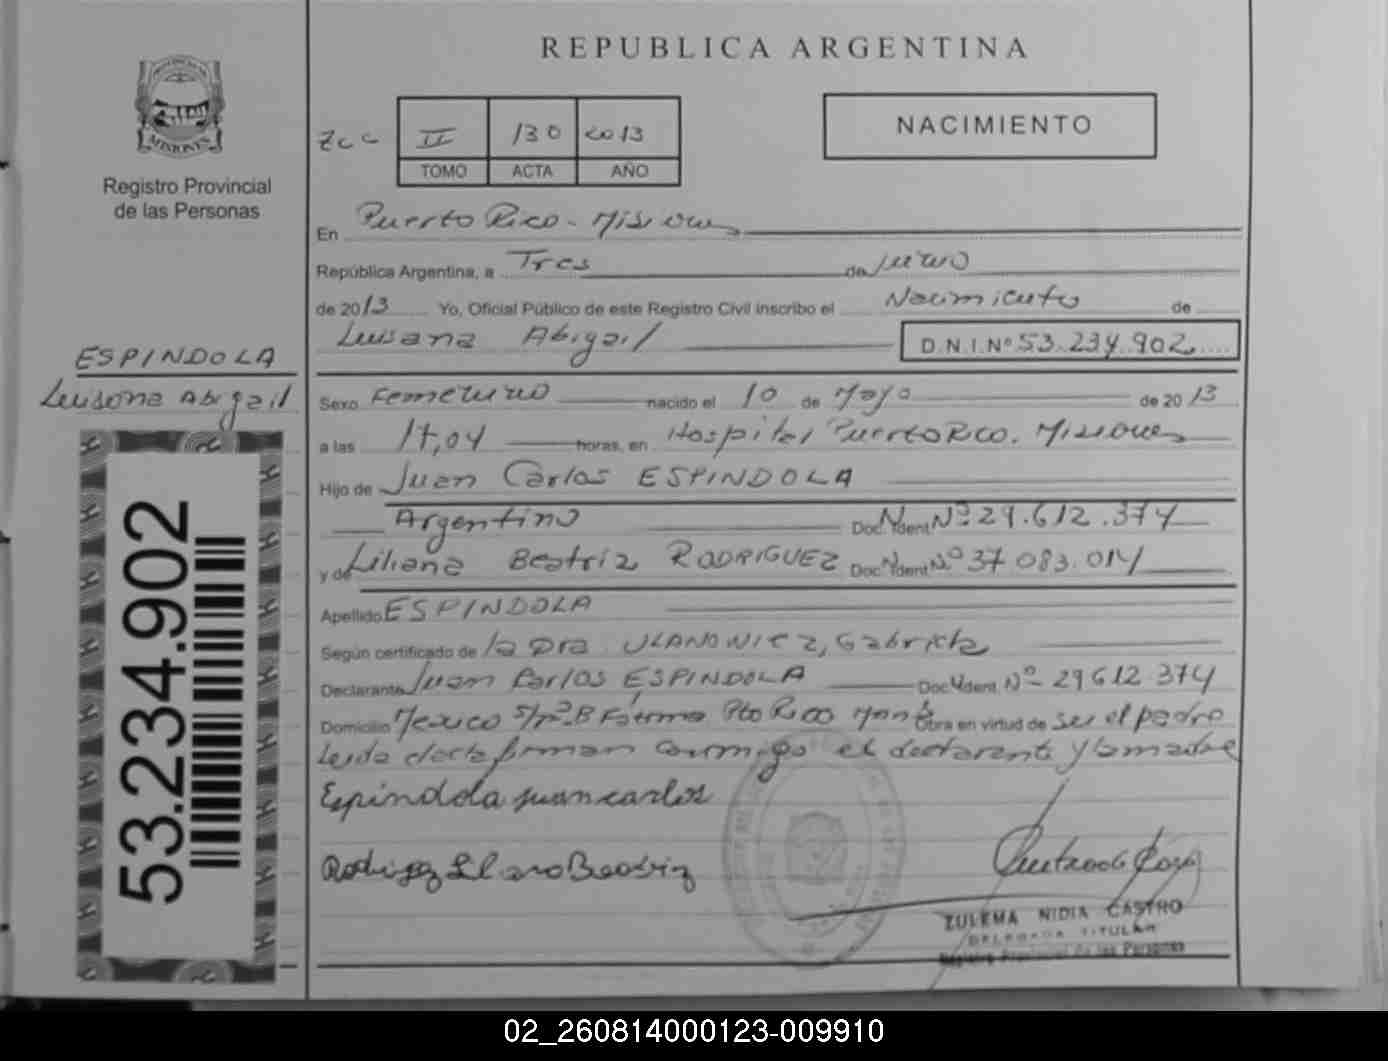 REPUBLICA ARGENTINA
MISIONES
Registro Provincial
de las Personas
II 130 2013
TOMO ACTA AÑO
NACIMIENTO
En Puerto Rico - Misiones
República Argentina, a Tres de Junio
de 2013 Yo, Oficial Público de este Registro Civil inscribo el Nacimiento de
Luisana Abigail D.N.I.Nº 53.234.902
ESPINDOLA
Luisana Abigail
Sexo Femenino nacido el 10 de Mayo de 2013
a las 17,04 horas, en Hospital Puerto Rico. Misiones
Hijo de Juan Carlos ESPINDOLA
Argentino Doc. Ident. Nº 29.612.374
y de Liliana Beatriz RODRIGUEZ Doc. Ident. Nº 37.083.014
Apellido ESPINDOLA
Según certificado de la Dra. ULANOWICZ, Gabriela
Declarante Juan Carlos ESPINDOLA Doc. Ident. Nº 29612.374
Domicilio Mexico S/nº B Fátima Pto Rico Obra en virtud de ser el padre
Leida el acta firman conmigo el declarante y la madre
Espindola juan carlos
Rodriguez Beatriz
ZULEMA NIDIA CASTRO
DELEGADA TITULAR
Registro Provincial de las Personas
53.234.902
02_260814000123-009910